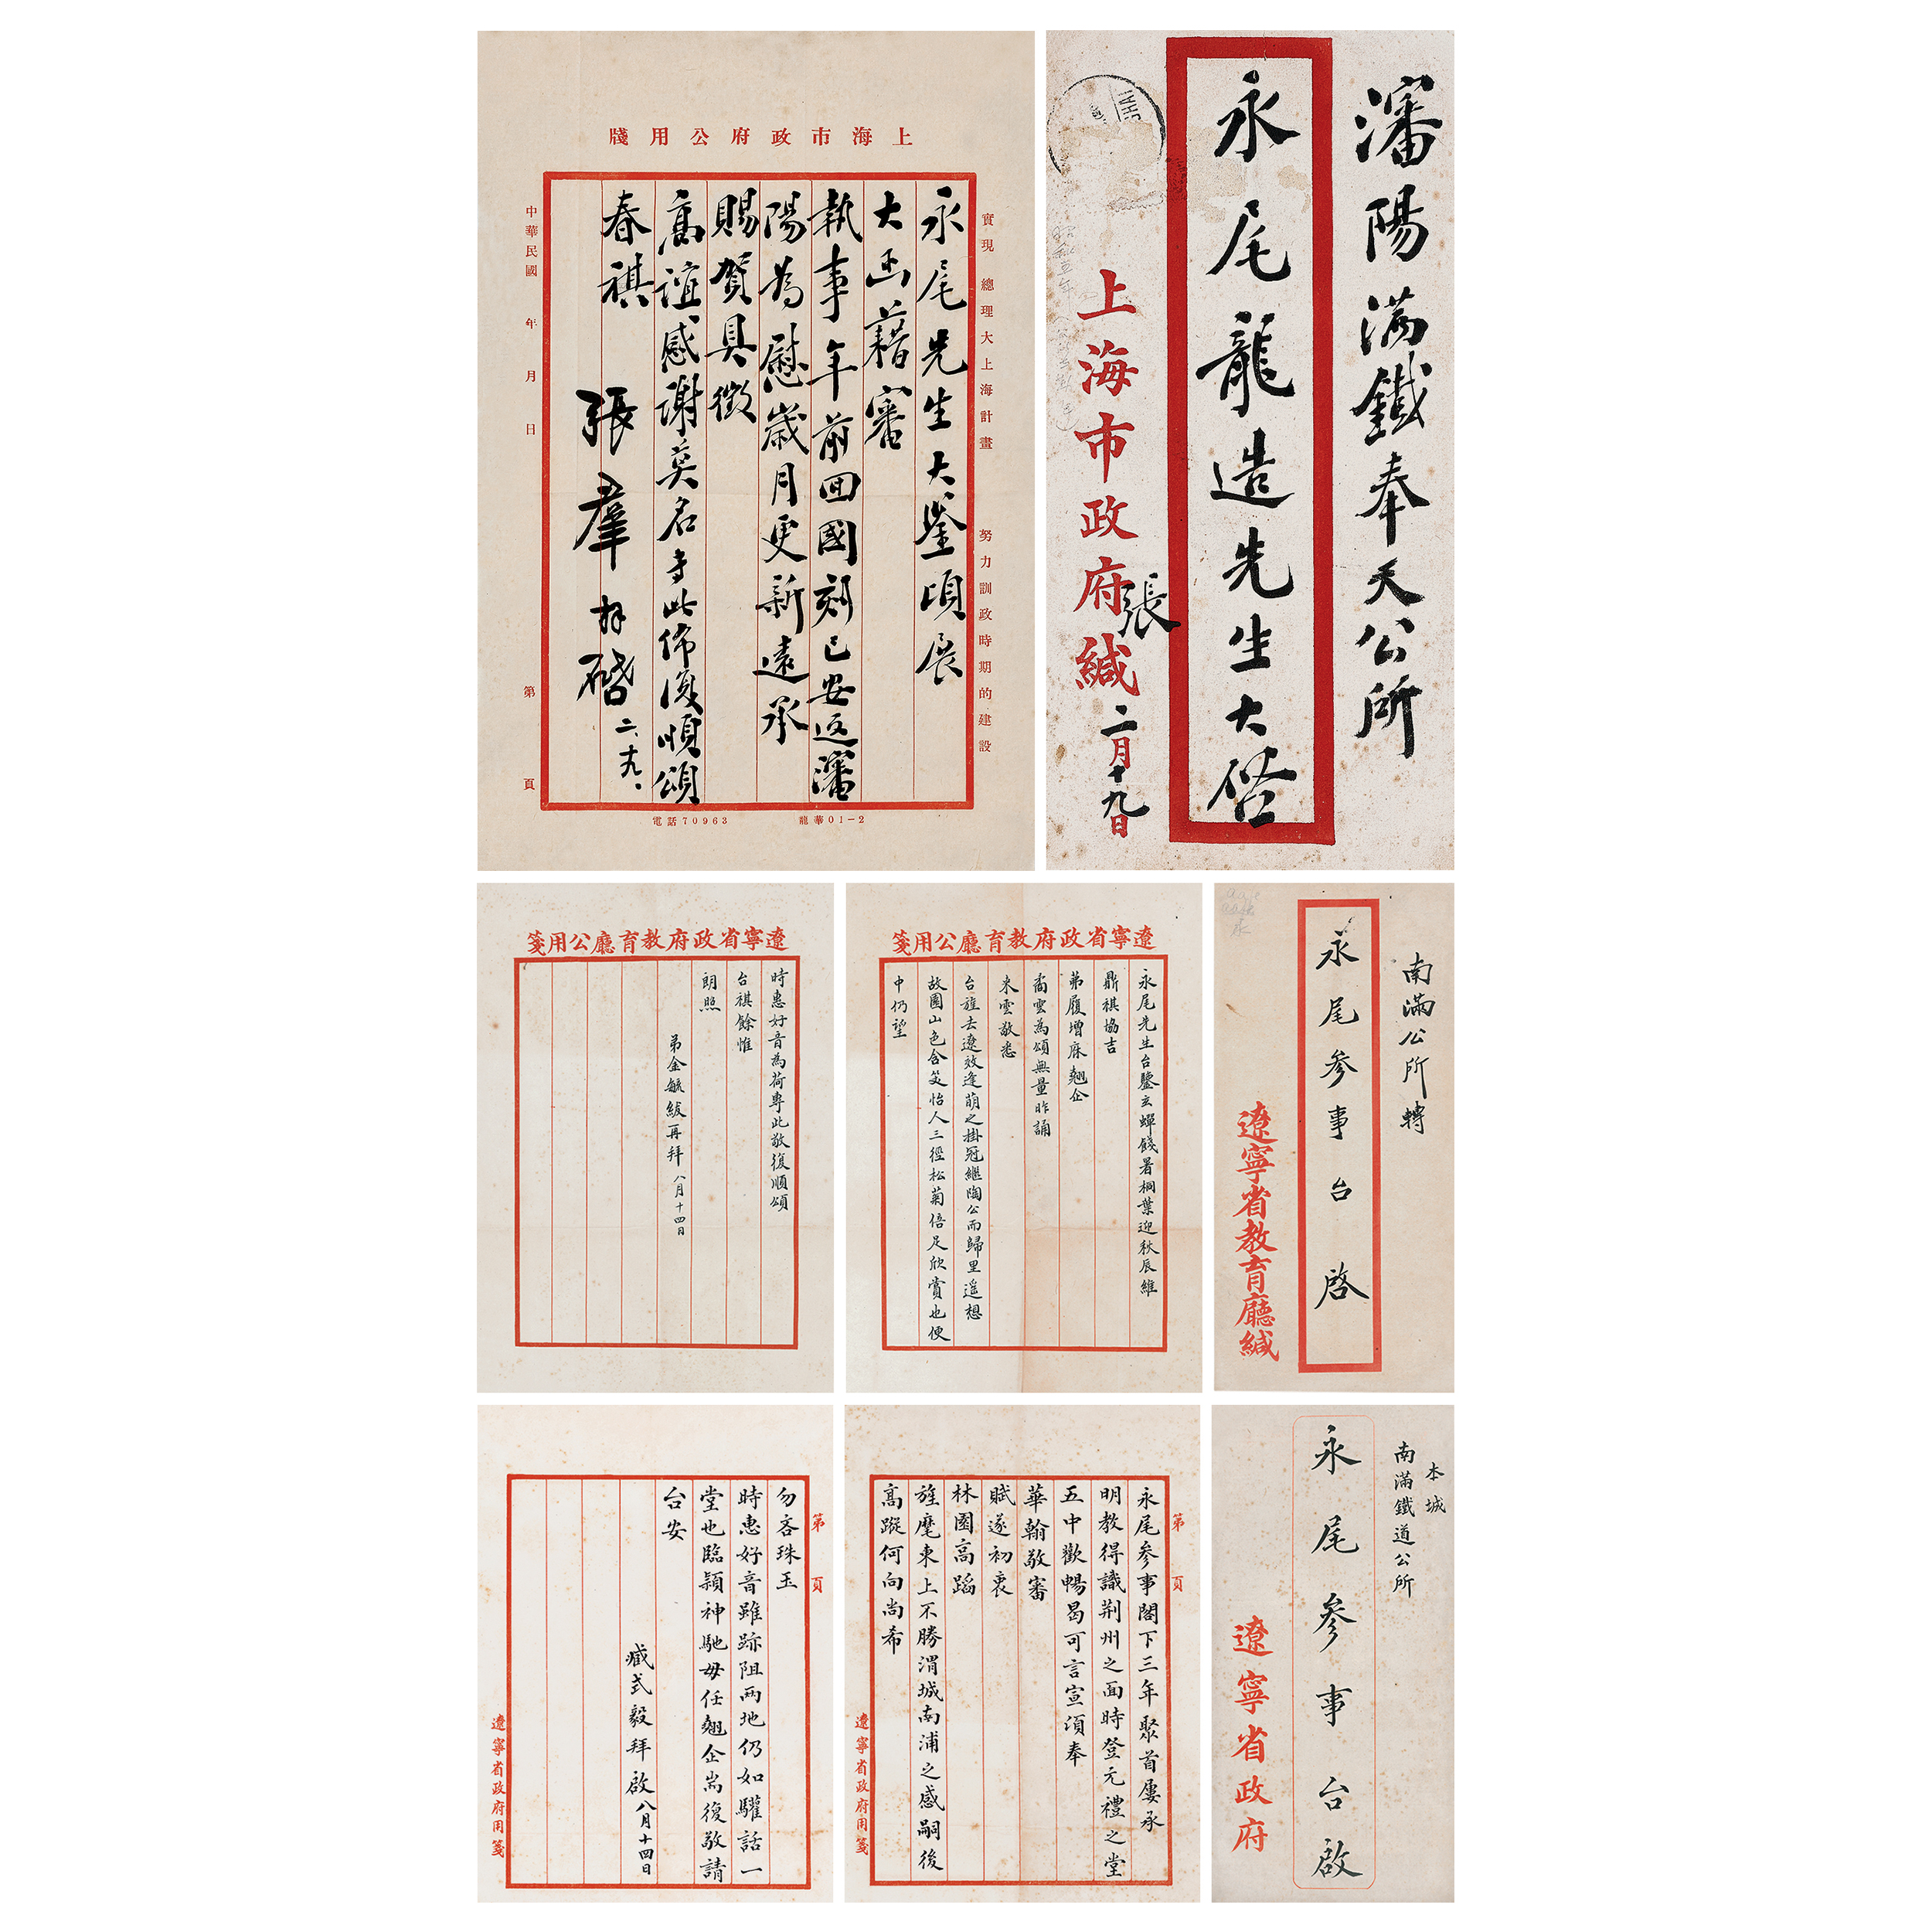 上海市政府公用牋
實現 總理大上海計畫 努力訓政時期的建設
永尾先生大鑒頃展
大函藉審
執事年前回國刻已安返瀋
陽為慰歲月更新遠承
賜賀具徵
高誼感謝莫名專此佈復順頌
春祺
張羣拜啓 二、十九、
中華民國 年 月 日 第 頁
電話70963 龍華01-2
瀋陽滿鐵奉天公所
永尾龍造先生大啓
上海市政府緘 張
二月十九日
遼寧省政府教育廳公用箋
時惠好音為荷專此敬復順頌
台祺餘惟
朗照
弟金毓紱再拜 八月十四日
遼寧省政府教育廳公用箋
永尾先生台鑒玄蟬餞暑桐葉迎秋辰維
鼎祺協吉
茀履增庥翹企
矞雲為頌無量昨誦
朵雲敬悉
台旌去遼效逢萌之掛冠繼陶公而歸里遥想
故園山色含笑怡人三徑松菊倍足欣賞也便
中仍望
南滿公所轉
永尾參事台啓
遼寧省教育廳緘
第 頁
勿吝珠玉
時惠好音雖跡阻兩地仍如驩話一
堂也臨穎神馳毋任翹企耑復敬請
台安
臧式毅拜啟 八月十四日
遼寧省政府用箋
第 頁
永尾參事閣下三年聚首屢承
明教得識荆州之面時登元禮之堂
五中歡暢曷可言宣頃奉
華翰敬審
賦遂初衷
林園高蹈
旌麾東上不勝渭城南浦之感嗣後
高蹤何向尚希
遼寧省政府用箋
本城
南滿鐵道公所
永尾參事台啟
遼寧省政府